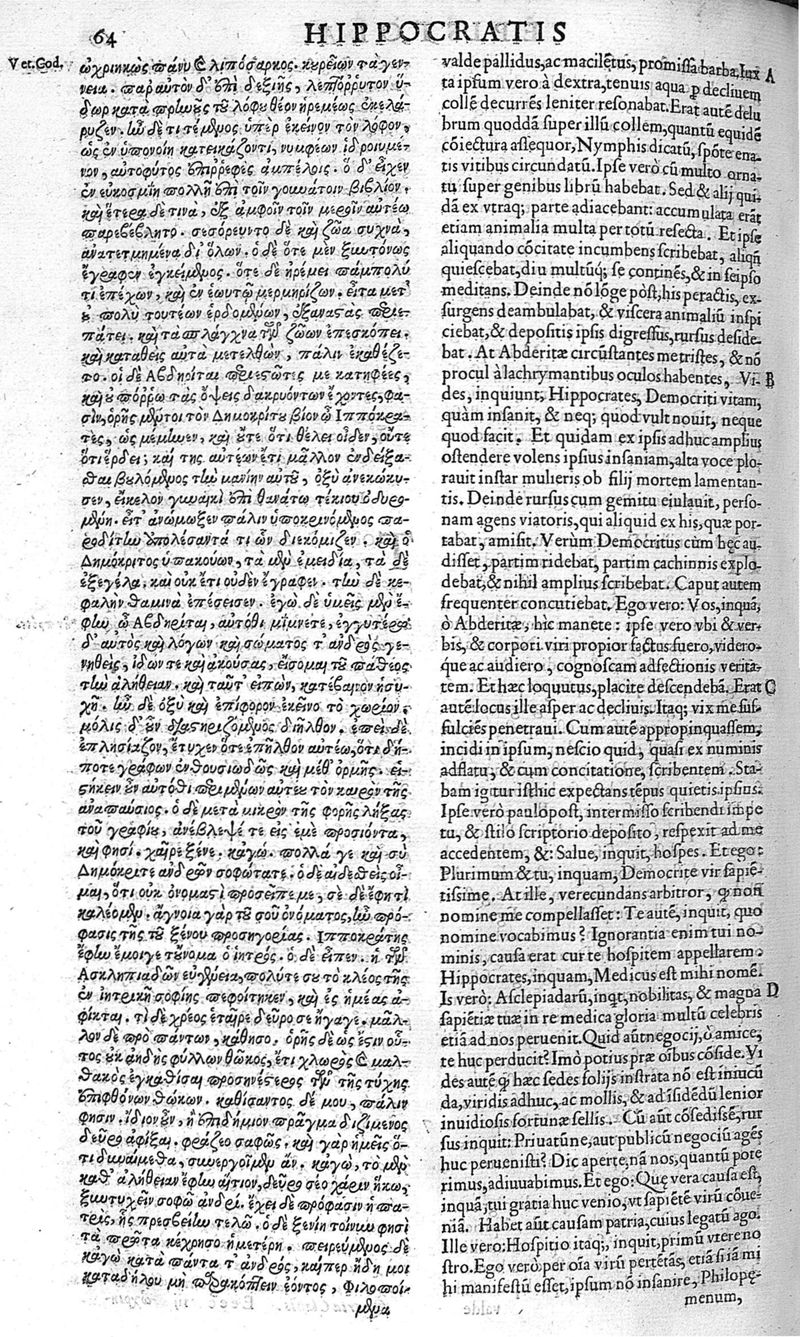 64
HIPPOCRATIS
Vet. Cod.
ὠχριηκὼς πάνυ καὶ λιπόσαρκος. κουρεῖων τὰ γεν-
νεια. παρ αυτὸν δ' ἐπὶ δεξιῆς, λεπτόρρυτον ὕ-
δωρ κατὰ πρωνοῦς τοῦ λόφου θέον ἠρεμέως ἐκελά-
ρυζεν. ἦν δὲ τι τέμενος ὑπὲρ ἐκείνου τὸν λόφον,
ὡς ἐν ὑπονοίη κατεικάζοντι, νυμφέων ἱδρουμε-
νον, αὐτοφύτοις ἐπηρεφὲς ἀμπέλοις. ὁ δ' εἶχεν
ἐν εὐκοσμίη πολλῇ ἐπὶ τοῖν γουνάτοιν βιβλίον.
καὶ ἕτερα δέ τινα, ἐξ ἀμφοῖν τοῖν μεροῖν αὐτέω
παρεβέβλητο. σεσόρευντο δὲ καὶ ζῶα συχνὰ,
ἀνατετμημένα δι' ὅλων. ὁ δὲ ὁτὲ μὲν ξυντόνως
ἔγραφεν ἐγκείμενος. ὁτὲ δὲ ἠρέμει πάμπολύ
τι ἐπέχων, καὶ ἐν ἑωυτῷ μερμηρίζων. εἶτα μετ'
οὐ πολὺ τουτέων ἐρδομένων, ἐξαναστὰς περιε-
πάτει. καὶ τὰ σπλάγχνα τῶν ζώων ἐπεσκόπει.
καὶ καταθεὶς αὐτὰ μετελθὼν, πάλιν ἐκαθέζε-
το. οἱ δὲ Αβδηρῖται περιεστῶτες με κατηφέες,
καὶ οὐ πόρρω τὰς ὄψεις δακρυόντων ἔχοντες, φα-
σὶν, ὁρῇς μέντοι τὸν Δημοκρίτου βίον ὦ Ιππόκρα-
τες, ὡς μέμηνεν, καὶ οὔτε ὅτι θέλει οἶδεν, οὔτε
ὅτι ἔρδει; καί τις αὐτέων ἔτι μᾶλλον ἐνδείξα-
σθαι βουλόμενος τὴν μανίην αὐτοῦ, ὀξὺ ἀνεκώκυ-
σεν, εἴκελον γυναικὶ ἐπὶ θανάτῳ τέκνου ὀδυρο-
μένη. εἶτ' ἀνώμωξεν πάλιν ὑποκρινόμενος πα-
ροδίτην ἀπολέσαντά τι ὧν διεκόμιζεν. καὶ ὁ
Δημόκριτος ὑπακούων, τὰ μὲν ἐμειδία, τὰ δὲ
ἐξεγέλα. καὶ οὐκ ἔτι οὐδὲν ἔγραφεν. τὴν δὲ κε-
φαλὴν θαμινὰ ἐπέσεισεν. ἐγὼ δὲ ὑμεῖς μὲν ἔ-
φην ὦ Αβδηρῖται, αὐτόθι μίμνετε, ἐγγυτέρω
δ' αὐτὸς καὶ λόγων καὶ σώματος τ' ἀνδρὸς γε-
νηθεὶς, ἰδών τε καὶ ἀκούσας, εἴσομαι τοῦ πάθεος
τὴν ἀλήθειαν. καὶ ταῦτ' εἰπὼν, κατέβαινον ἡσυ-
χῆ. ἦν δὲ ὀξὺ καὶ ἐπίφορον ἐκεῖνο τὸ χωρίον.
μόλις δ' οὖν διαστηριζόμενος διῆλθον. ἐπεὶ δὲ
ἐπλησίαζον, ἔτυχεν ὅτε ἐπῆλθον αὐτέῳ, ὅτι δή-
ποτε γράφων ἐνθουσιωδῶς καὶ μεθ' ὁρμῆς. εἱ-
στήκειν οὖν αὐτόθι περιμένων αὐτεου τὸν καιρὸν τῆς
ἀναπαύσιος. ὁ δὲ μετὰ μικρὸν τῆς φορῆς λήξας
τοῦ γραφίου, ἀνέβλεψέ τε εἰς ἐμὲ προσιόντα,
καὶ φησὶ. χαῖρε ξένε. κᾀγώ. πολλά γε καὶ σὺ
Δημόκριτε ἀνδρῶν σοφώτατε. ὁ δὲ αἰδεσθεὶς οἶ-
μαι, ὅτι οὐκ ὀνομαστὶ προσεῖπε με, σὲ δὲ ἔφη τί
καλέομεν. ἄγνοια γὰρ τοῦ σοῦ ὀνόματος, ἦν πρό-
φασις τῆς τοῦ ξένου προσηγορίας. Ιπποκράτης
ἔφην ἔμοιγε τοὔνομα ὁ ἰητρός. ὁ δὲ εἶπεν. ἡ τῶν
Ασκληπιαδῶν εὐγένεια, πολύ τε σου τὸ κλέος τῆς
ἐν ἰητρικῇ σοφίης πεφοίτηκεν, καὶ ἐς ἡμέας ἀ-
φῖκται. τί δὲ χρέος ἑταῖρε δεῦρο σε ἤγαγε. μᾶλ-
λον δὲ πρὸ πάντων, κάθησο. ὁρῇς δὲ ὡς ἔστιν οὗ-
τος οὐκ ἀηδὴς φύλλων θῶκος, ἔτι χλωρὸς καὶ μαλ-
θακὸς ἐγκαθίσαι προσηνέστερος τῶν τῆς τύχης
ἐπιφθόνων θώκων. καθίσαντος δέ μου, πάλιν
φησίν. ἴδιον οὖν, ἢ ἐπιδήμιον πρᾶγμα διζίμενος
δεῦρο ἀφῖξαι. φράζεο σαφῶς. καὶ γὰρ ἡμεῖς ὅ-
τι δυναίμεθα, συνεργοῖμεν ἄν. κᾀγὼ, τὸ μὲν
καθ' ἀλήθειαν ἔφην αἴτιον, δεῦρο σέο χάριν ἥκω,
ξυντυχεῖν σοφῷ ἀνδρί. ἔχει δὲ πρόφασιν ἡ πα-
τρὶς, ἧς πρεσβείην τελῶ. ὁ δὲ ξενίη τοίνυν φησὶ
τὰ πρῶτα κέχρησο ἡμετέρῃ. πειρεύμενος δὲ
κᾀγὼ κατὰ πάντα τ' ἀνδρὸς, καίπερ ἤδη μοι
καταδήλου μὴ παρακόπτειν ἐόντος, Φιλοποί-
μενα
valde pallidus, ac macilẽtus, promissa barba, Iux A
ta ipsum vero à dextra, tenuis aqua ꝑ decliuem
collẽ decurrẽs leniter resonabat. Erat autẽ delu
brum quoddã super illũ collem, quantũ equidẽ
cõiectura assequor, Nymphis dicatũ, spõte ena-
tis vitibus circundatũ. Ipse verò cũ multo orna-
tu super genibus librũ habebat. Sed & alij qui-
dã ex vtraq; parte adiacebant: accumulata erãt
etiam animalia multa per totũ resecta. Et ipse
aliquando cõcitate incumbens scribebat, aliqñ
quiescebat, diu multũq; se continẽs, & in seipso
meditans. Deinde nõ lõge pòst, his peractis, ex-
surgens deambulabat, & viscera animaliũ inspi
ciebat, & depositis ipsis digressus, rursus deside-
bat. At Abderitæ circũstantes me tristes, & nõ
procul à lachrymantibus oculos habentes, Vi- B
des, inquiunt, Hippocrates, Democriti vitam,
quàm insanit, & neq; quod vult nouit, neque
quod facit. Et quidam ex ipsis adhuc amplius
ostendere volens ipsius insaniam, alta voce plo-
rauit instar mulieris ob filij mortem lamentan-
tis. Deinde rursus cum gemitu eiulauit, perso-
nam agens viatoris, qui aliquid ex his, quæ por-
tabat, amisit. Verùm Democritus cùm hęc au-
disset, partim ridebat, partim cachinnis explo-
debat, & nihil amplius scribebat. Caput autem
frequenter concutiebat. Ego vero: Vos, inquã,
ò Abderitæ, hic manete: ipse vero vbi & ver-
bis, & corpori viri propior factus fuero, videro-
que ac audiero, cognoscam adfectionis verita-
tem. Et hæc loquutus, placite descendebã. Erat C
autẽ locus ille asper ac decliuis. Itaq; vix me suf-
fulciẽs penetraui. Cum autẽ appropinquassem,
incidi in ipsum, nescio quid, quasi ex numinis
adflatu, & cum concitatione, scribentem. Sta-
bam igitur isthic expectans tẽpus quietis ipsius.
Ipse verò paulopost, intermisso scribendi impe
tu, & stilo scriptorio deposito, respexit ad me
accedentem, &: Salue, inquit, hospes. Et ego:
Plurimum & tu, inquam, Democrite vir sapiẽ-
tissime. At ille, verecundans arbitror, ꝙ non
nomine me compellasset: Te autẽ, inquit, quo
nomine vocabimus? Ignorantia enim tui no-
minis, causa erat cur te hospitem appellarem.
Hippocrates, inquam, Medicus est mihi nomẽ.
Is verò; Asclepiadarũ, inqt, nobilitas, & magna D
sapiẽtiæ tuæ in re medica gloria multũ celebris
etiã ad nos peruenit. Quid aũt negocij, ò amice,
te huc perducit? Imò potius præ oĩbus cõside. Vi
des autẽ ꝙ hæc sedes folijs instrata nõ est iniucũ
da, viridis adhuc, ac mollis, & ad ĩsidẽdũ lenior
inuidiosis fortunæ sellis. Cũ aũt cõsedissẽ, rur
sus inquit: Priuatũne, aut publicũ negociũ agẽs
huc peruenisti? Dic aperte, nã nos, quantũ pote
rimus, adiuuabimus. Et ego: Quę vera causa est,
inquã, tui gratia huc venio, vt sapiẽtẽ virũ cõue-
niã. Habet aũt causam patria, cuius legatũ ago.
Ille vero: Hospitio itaq;, inquit, primũ vtere no
stro. Ego verò per oĩa virũ pertẽtãs, etiã si iã mi
hi manifestũ esset, ipsum nõ insanire, Philopę-
menum,